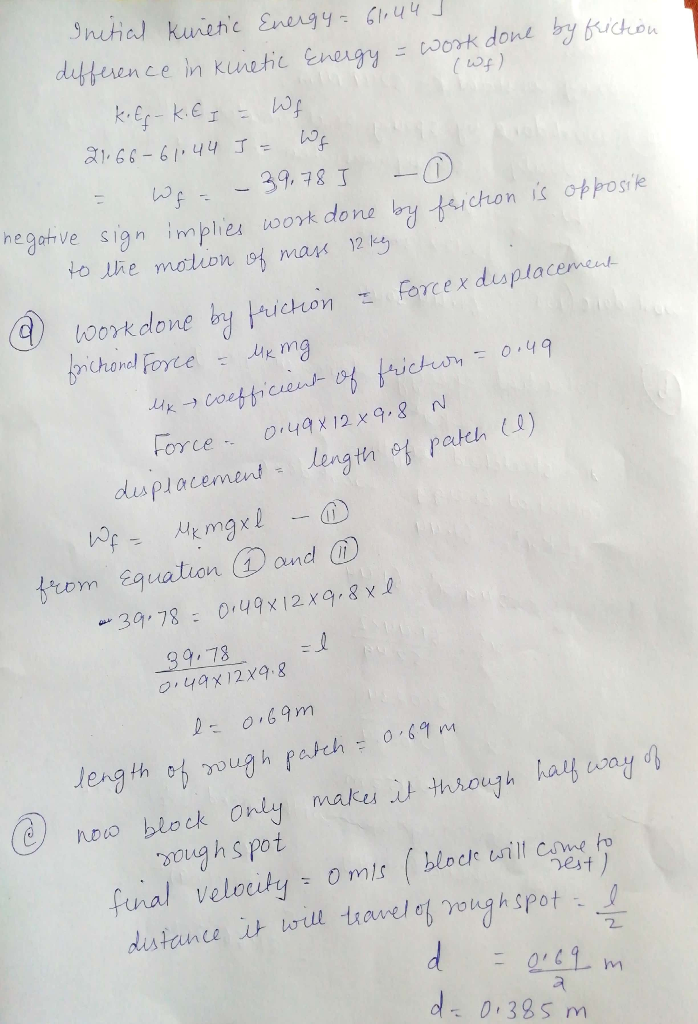 Initial Kinetic Energy = 61.44 J
difference in Kinetic Energy = work done by friction
(Wf)
K.Ef - K.E I = Wf
21.66 - 61.44 J = Wf
= Wf = - 39.78 J — (i)
negative sign implies work done by friction is opposite
to the motion of mass 12 kg
(d) work done by friction = Force x displacement
frictional Force = μk mg
μk → coefficient of friction = 0.49
Force = 0.49 x 12 x 9.8 N
displacement = length of patch (l)
Wf = μk mg x l — (ii)
from Equation (1) and (ii)
- 39.78 = 0.49 x 12 x 9.8 x l
39.78 / 0.49 x 12 x 9.8 = l
l = 0.69 m
length of rough patch = 0.69 m
(e) now block only makes it through half way of
rough spot
final velocity = 0 m/s (block will come to
rest)
distance it will travel of rough spot = l/2
d = 0.69/2 m
d = 0.385 m